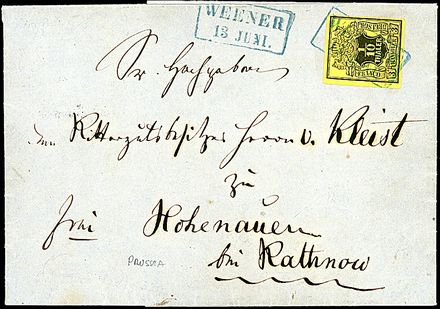 WEENER
13 JUNI.
Sr. Hochgeboren
dem Rittergutsbesitzer Herrn v. Kleist
zu
frei Hohenauen
bei Rathnow
PRUSSIA
1
10
THALER
FRANCO